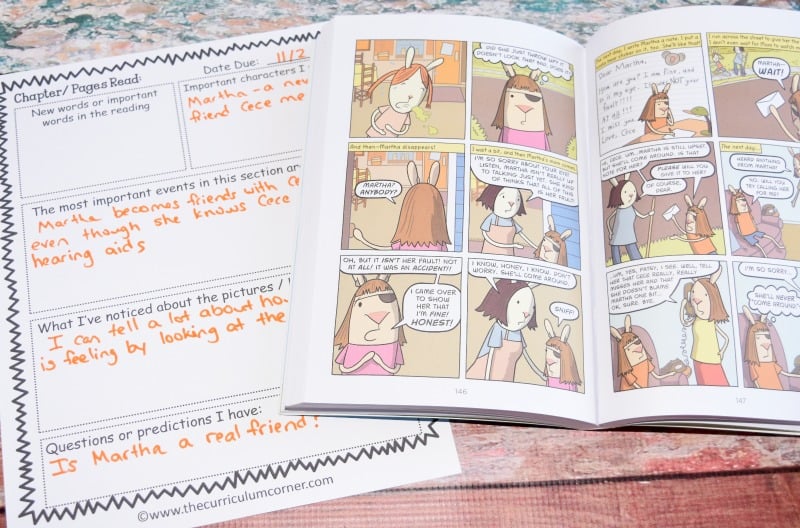 Chapter/Pages Read:
Date Due: 11/2
New words or important
words in the reading
Important characters I
Martha - a new
fiend Cece me
The most important events in this section ar
Martha becomes friends with Ce
even though she knows Cece
hearing aids
What I've noticed about the pictures /
I can tell a lot about ho
is feeling by looking at the
Questions or predictions I have:
Is Martha a real friend?
©www.thecurriculumcorner.com
DID SHE JUST THROW UP? IT
DOESN'T LOOK THAT BAD, DOES IT?
And then—Martha disappears!
MARTHA?
ANYBODY?
I wait a bit, and then Martha's mom comes.
I'M SO SORRY ABOUT YOUR EYE.
LISTEN, MARTHA ISN'T REALLY UP
TO TALKING JUST YET. SHE KIND
OF THINKS THAT ALL OF THIS
IS HER FAULT.
OH, BUT IT ISN'T HER FAULT! NOT
AT ALL! IT WAS AN ACCIDENT!
I CAME OVER
TO SHOW
HER THAT
I'M FINE!
HONEST!
I KNOW, HONEY, I KNOW. DON'T
WORRY. SHE'LL COME AROUND.
SNIFF!
146
The next day, I write Martha a note. I put a
on it, too. She'll like that!
Dear Martha,
How are you? I am fine, and
so is my eye. NOT your
fault!!!!
AT ALL!!!
I miss you
Love, Cece
I run across the street to give her the
I don't even wait for Mom to watch me
MARTHA—
WAIT!
HI, CECE. UM, MARTHA IS STILL UPSET,
BUT SHE'LL COME AROUND. IS THAT
NOTE FOR HER?
PLEASE WILL YOU
GIVE IT TO HER?
OF COURSE,
DEAR.
The next day...
HEARD ANYTHING
FROM MARTHA?
NO. WILL YOU
TRY CALLING HER
FOR ME?
UM, YES, PATSY, I SEE. WELL, TELL
HER THAT CECE REALLY, REALLY
MISSES HER AND THAT
SHE DOESN'T BLAME
MARTHA ONE BIT...
OK, SURE. BYE.
I'M SO SORRY...
SHE'LL NEVER
COME AROUND!
147